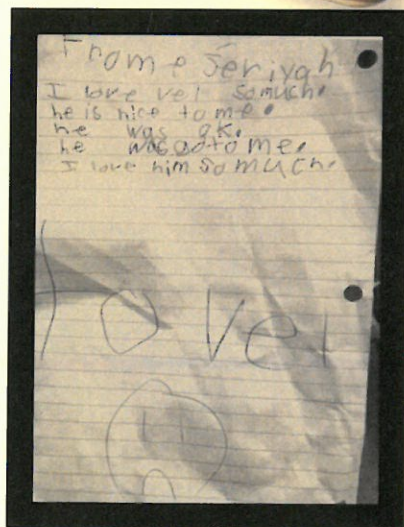 Frome Jeriyah
I love vel somuch.
he is nice to me.
he was ok.
he was to me.
I love him so much.
To Vel